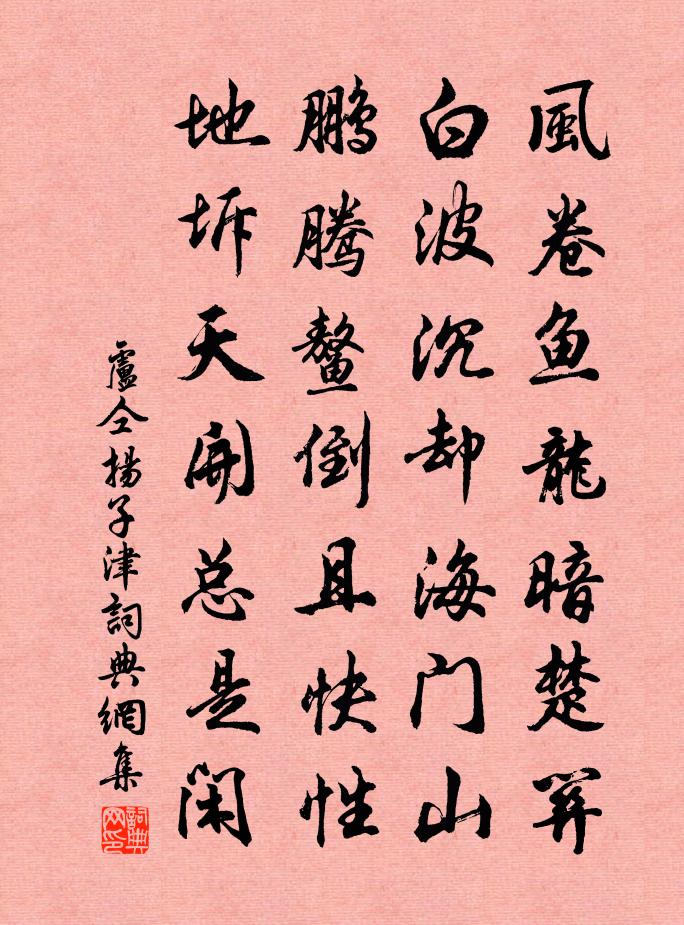 風卷鱼龍暗楚關
白波沉却海门山
鵬騰鳌倒且快性
地坼天開总是闲
盧仝揚子津詞典網集
詞典网印